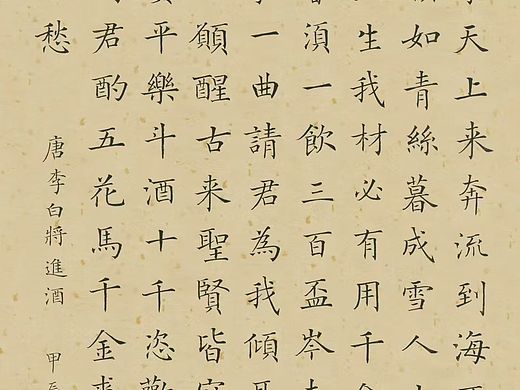 天上来奔流到海
如青絲暮成雪人
生我材必有用千
須一飲三百盃岑
一曲請君為我傾
願醒古来聖賢皆
平樂斗酒十千恣歡
君酌五花馬千金裘
愁
唐李白將進酒 甲辰